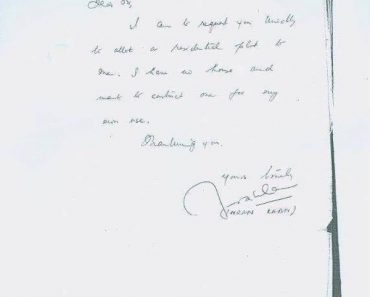 Dear Sir,
I am to request you kindly
to allot a residential plot to
me. I have no house and
want to contruct one for my
own use.
Thanking you.
yours
(IMRAN KHAN)